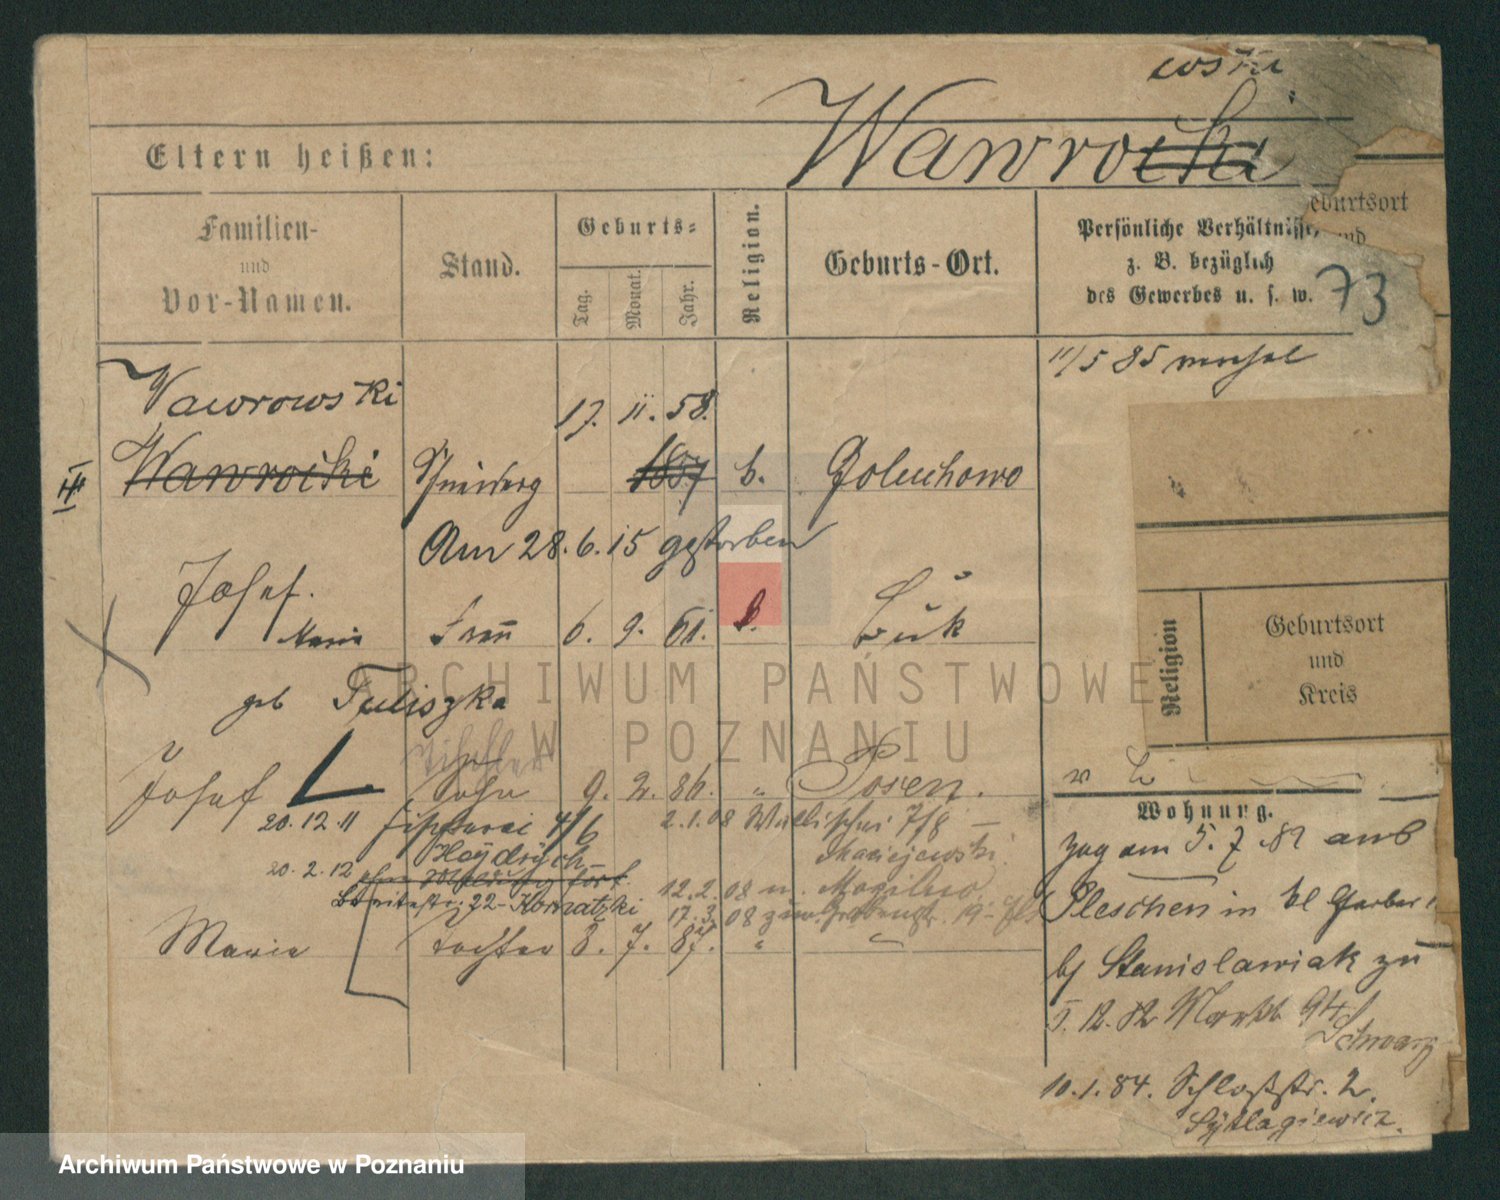 wski
Wawrocki
Eltern heißen:
Familien-
und
Vor-Namen.
Stand.
Geburts-
Tag.
Monat.
Jahr.
Religion.
Geburts-Ort.
Persönliche Verhältnisse,
z. B. bezüglich
des Gewerbes u. s. w.
Geburtsort
und
73
11/5 85
Wawrowski
17. 11. 58.
III
Wawrocki
1857
Goluchowo
Am 28. 6. 15 gestorben
Josef.
Maria
Frau
6. 9. 61.
Buk
geb Tuliszka
Religion
Geburtsort
und
Kreis
ARCHIWUM PAŃSTWOWE
W POZNANIU
Josef
Sohn
9. 2. 86. "
Posen.
20. 12. 11
4/6
2. 1. 08 Wallischei 7/8 —
Heydrich
Maciejewski
20. 2. 12
12. 2. 08 n. Mogilno
22 - Kornatzki
17. 3. 08
Maria
Tochter
8. 7. 87. "
Wohnung.
zog am 5. 7. 82 aus
Pleschen in
bj Stanislawiak zu
5. 12. 82 Markt 94
Schwarz
10. 1. 84. Schloßstr. 2.
Archiwum Państwowe w Poznaniu